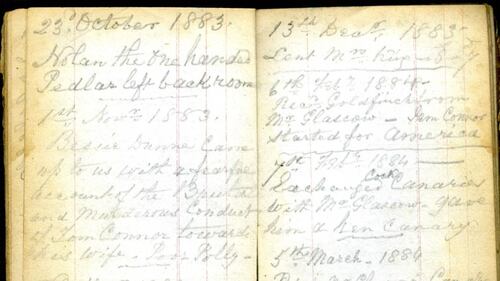 23d October 1883.
Nolan the one handed
Pedlar left back room
1st Novr 1883.
Bessie Dunne Came
up to us with a fearful
account of the Brutal
and Murderous Conduct
of Tom Connor towards
his wife - Poor Polly -
13th Decr. 1883-
Lent Mrs
6th Feby 1884-
Recd Goldfinch from
Mr Glascow - Tom Connor
started for America
Feby 1884
Exchanged Cock Canaries
with Mr Glascow - gave
him a Hen Canary
5th March - 1884